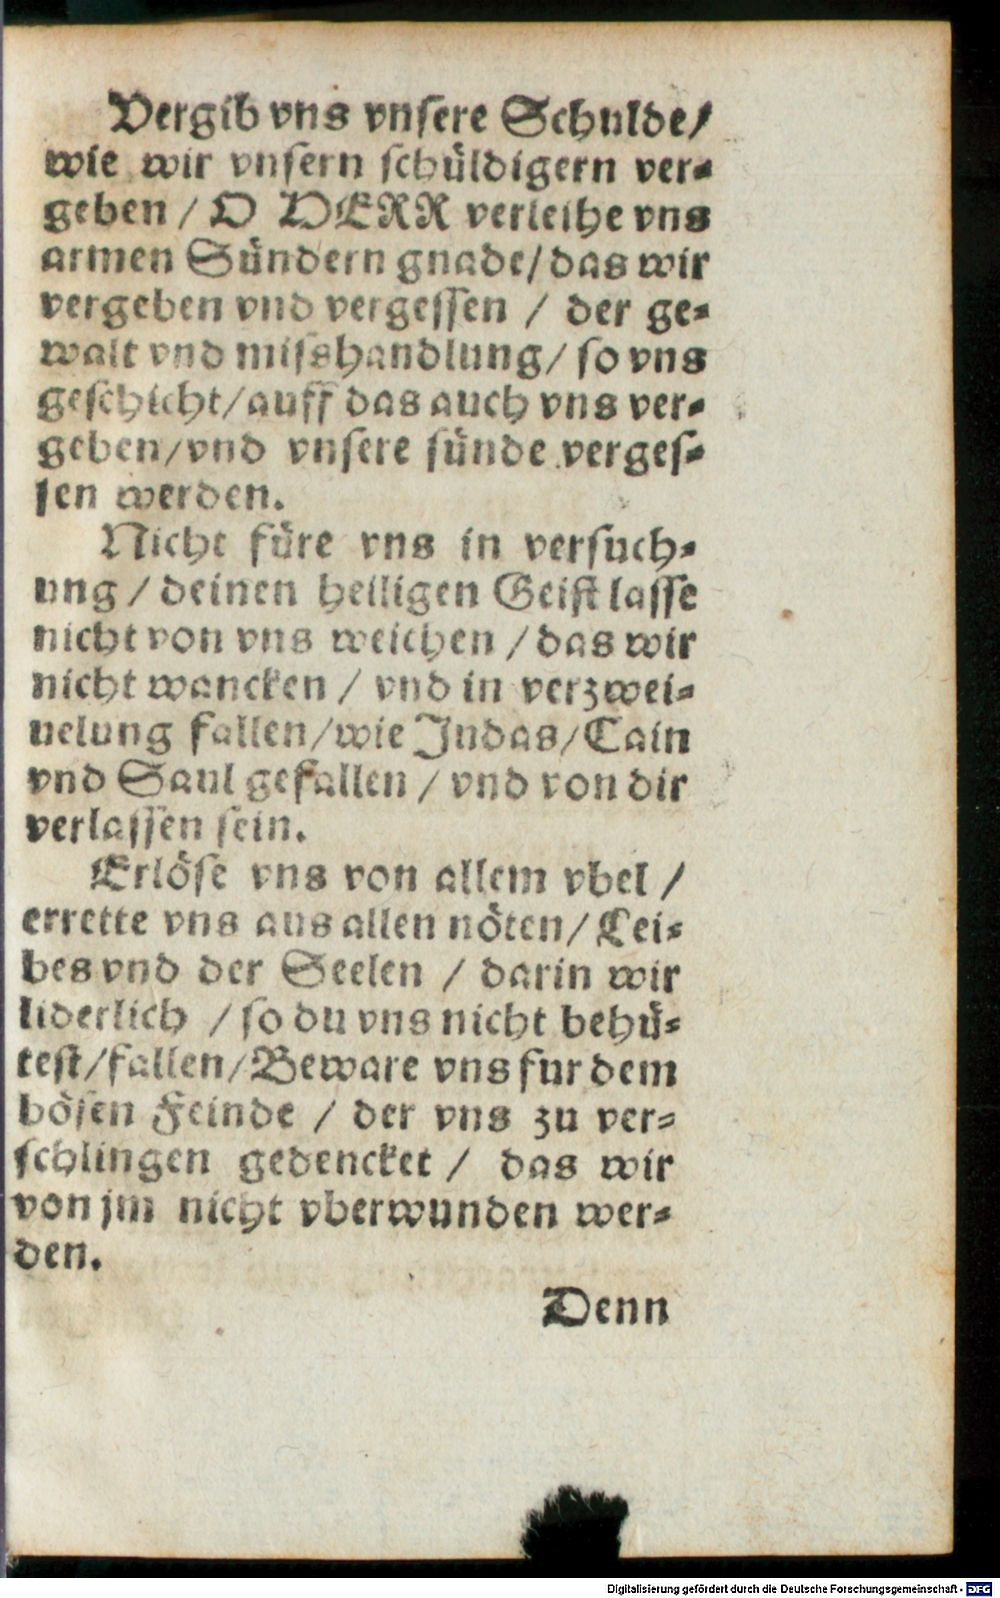 Vergib vns vnsere Schulde/
wie wir vnsern schüldigern ver-
geben / O HERR verleihe vns
armen Sündern gnade/das wir
vergeben vnd vergessen / der ge-
walt vnd misshandlung/ so vns
geschicht/auff das auch vns ver-
geben/vnd vnsere sünde verges-
sen werden.
Nicht füre vns in versuch-
ung / deinen heiligen Geist lasse
nicht von vns weichen / das wir
nicht wancken / vnd in verzwei-
uelung fallen/wie Judas/Cain
vnd Saul gefallen / vnd von dir
verlassen sein.
Erlöse vns von allem vbel /
errette vns aus allen nöten/ Lei-
bes vnd der Seelen / darin wir
liderlich / so du vns nicht behü-
test/fallen/Beware vns fur dem
bösen Feinde / der vns zu ver-
schlingen gedencket / das wir
von jm nicht vberwunden wer-
den.
Denn
Digitalisierung gefördert durch die Deutsche Forschungsgemeinschaft - DFG